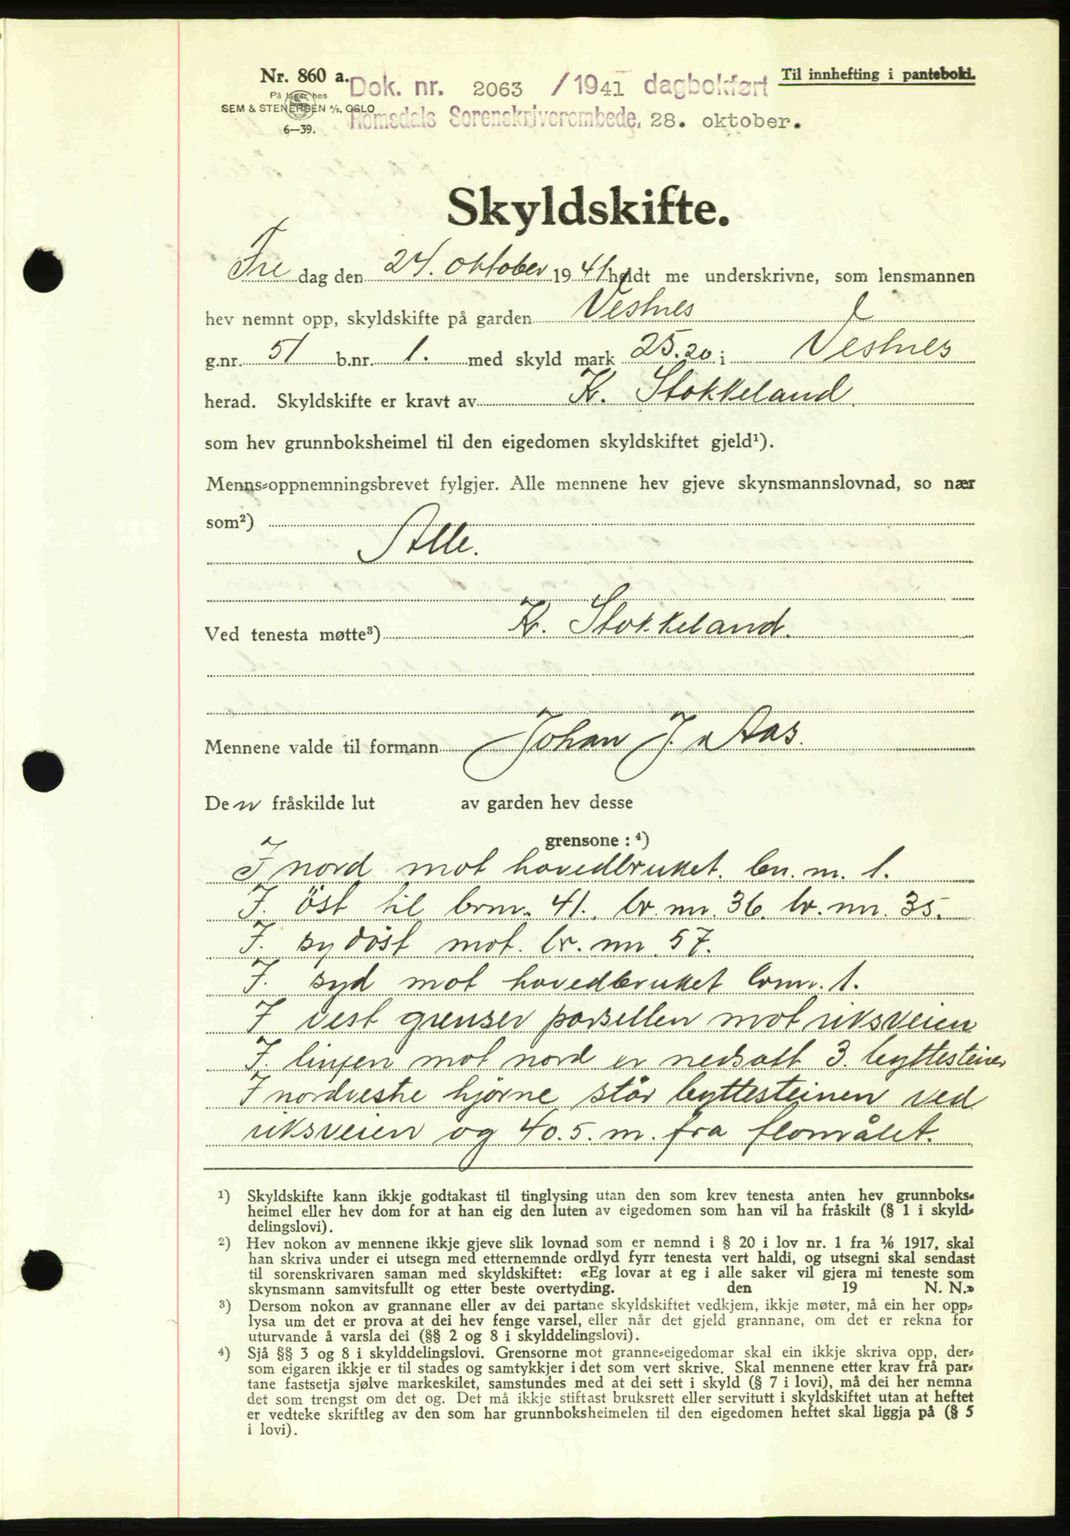 Nr. 860 a.
På lager hos
SEM & STENERSEN A/S. OSLO
6—39.
Dok. nr. 2063 / 1941 dagbokført
Romsdals Sorenskriverembede, 28. oktober.
Til innhefting i panteboki.
Skyldskifte.
Fre dag den 24. oktober 19 41 heldt me underskrivne, som lensmannen
hev nemnt opp, skyldskifte på garden Vestnes
g.nr. 51 b.nr. 1. med skyld mark 25.20 i Vestnes
herad. Skyldskifte er kravt av K. Stokkeland.
som hev grunnboksheimel til den eigedomen skyldskiftet gjeld¹).
Menns-oppnemningsbrevet fylgjer. Alle mennene hev gjeve skynsmannslovnad, so nær
som²)
Alle.
Ved tenesta møtte³) K. Stokkeland.
Mennene valde til formann Johan J. Aas.
Den fråskilde lut av garden hev desse
grensone : ⁴)
I nord mot hovedbruket. bn. nr. 1.
I. öst til brnr. 41. br. nr. 36. br. nr. 35.
I. sydöst mot. br. nr. 57.
I. syd mot hovedbruket brnr. 1.
I vest grenser parsellen mot riksveien
I. linjen mot nord er nedsatt 3. byttesteiner
I nordvestre hjörne står byttesteinen ved
riksveien og 40.5. m. fra flomålet.
¹) Skyldskifte kann ikkje godtakast til tinglysing utan den som krev tenesta anten hev grunnboks-
heimel eller hev dom for at han eig den luten av eigedomen som han vil ha fråskilt (§ 1 i skyld-
delingslovi).
²) Hev nokon av mennene ikkje gjeve slik lovnad som er nemnd i § 20 i lov nr. 1 fra 1/6 1917, skal
han skriva under ei utsegn med etternemnde ordlyd fyrr tenesta vert haldi, og utsegni skal sendast
til sorenskrivaren saman med skyldskiftet: «Eg lovar at eg i alle saker vil gjera mi teneste som
skynsmann samvitsfullt og etter beste overtyding. den 19 N. N.»
³) Dersom nokon av grannane eller av dei partane skyldskiftet vedkjem, ikkje møter, må ein her opp-
lysa um det er prova at dei hev fenge varsel, eller når det gjeld grannane, om det er rekna for
uturvande å varsla dei (§§ 2 og 8 i skylddelingslovi).
⁴) Sjå §§ 3 og 8 i skylddelingslovi. Grensorne mot granne-eigedomar skal ein ikkje skriva opp, der-
som eigaren ikkje er til stades og samtykkjer i det som vert skrive. Skal mennene etter krav frå par-
tane fastsetja sjølve markeskilet, samstundes med at dei sett i skyld (§ 7 i lovi), må dei her nemna
det som trengst om det og. Det må ikkje stiftast bruksrett eller servitutt i skyldskiftet utan at heftet
er vedteke skriftleg av den som har grunnboksheimelen til den eigedomen heftet skal liggja på (§ 5
i lovi).